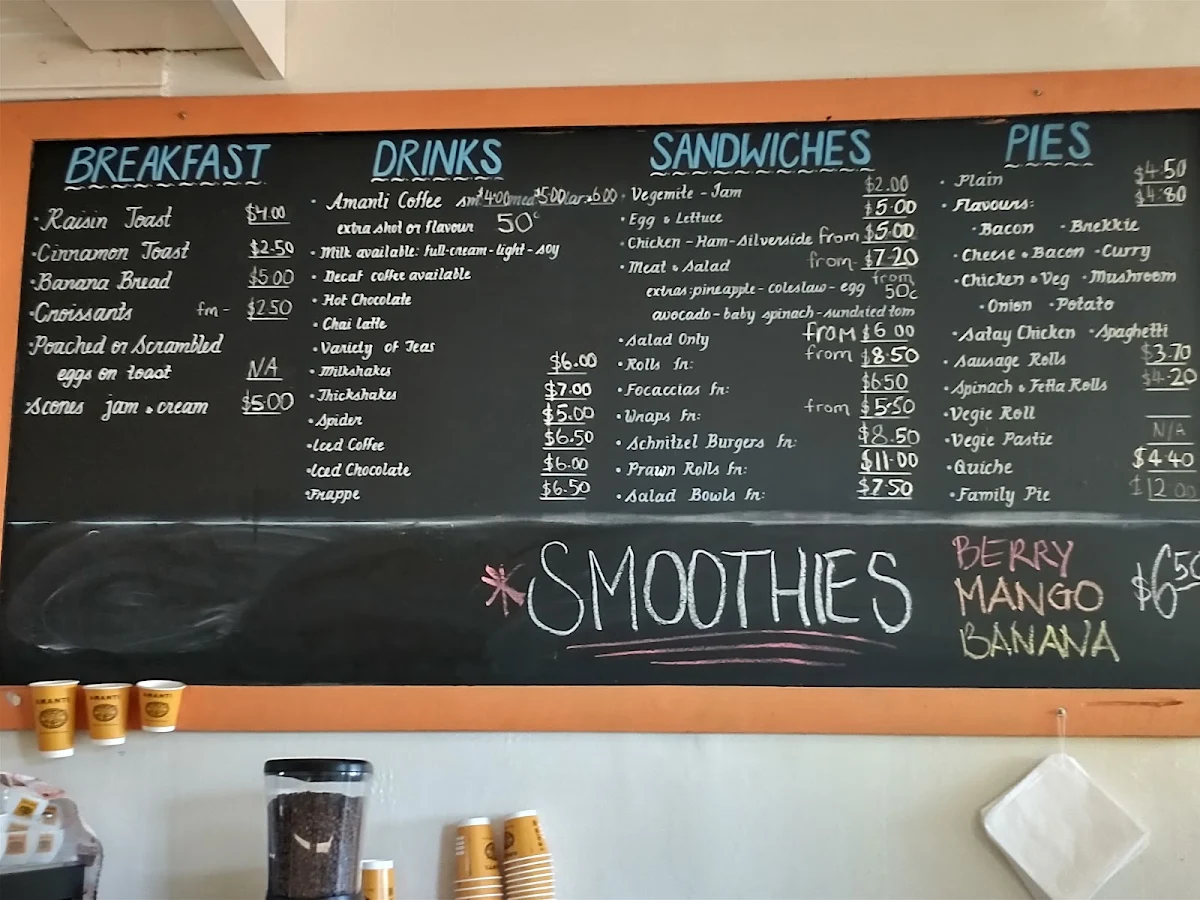 BREAKFAST
• Raisin Toast $4.00
• Cinnamon Toast $2.50
• Banana Bread $5.00
• Croissants fm - $2.50
• Poached or Scrambled
eggs on toast N/A
• Scones jam & cream $5.00
DRINKS
• Amanti Coffee sm $4.00 med $5.00 lar $6.00
extra shot or flavour 50c
• Milk available: full-cream - light - soy
• Decaf coffee available
• Hot Chocolate
• Chai latte
• Variety of Teas
• Milkshakes $6.00
• Thickshakes $7.00
• Spider $5.00
• Iced Coffee $6.50
• Iced Chocolate $6.00
• Frappe $6.50
SANDWICHES
• Vegemite - Jam $2.00
• Egg & Lettuce $5.00
• Chicken - Ham - Silverside from $5.00
• Meat & Salad from $7.20
extras: pineapple - coleslaw - egg from 50c
avocado - baby spinach - sundried tom
• Salad Only from $6.00
• Rolls fr: from $8.50
• Focaccias fr: $6.50
• Wraps fr: from $5.50
• Schnitzel Burgers fr: $8.50
• Prawn Rolls fr: $11.00
• Salad Bowls fr: $7.50
PIES
• Plain $4.50
• Flavours: $4.80
• Bacon • Brekkie
• Cheese & Bacon • Curry
• Chicken & Veg • Mushroom
• Onion • Potato
• Satay Chicken • Spaghetti
• Sausage Rolls $3.70
• Spinach & Fetta Rolls $4.20
• Vegie Roll
• Vegie Pastie N/A
• Quiche $4.40
• Family Pie $12.00
*SMOOTHIES
BERRY
MANGO
BANANA
$6.50
AMANTI
AMANTI
AMANTI